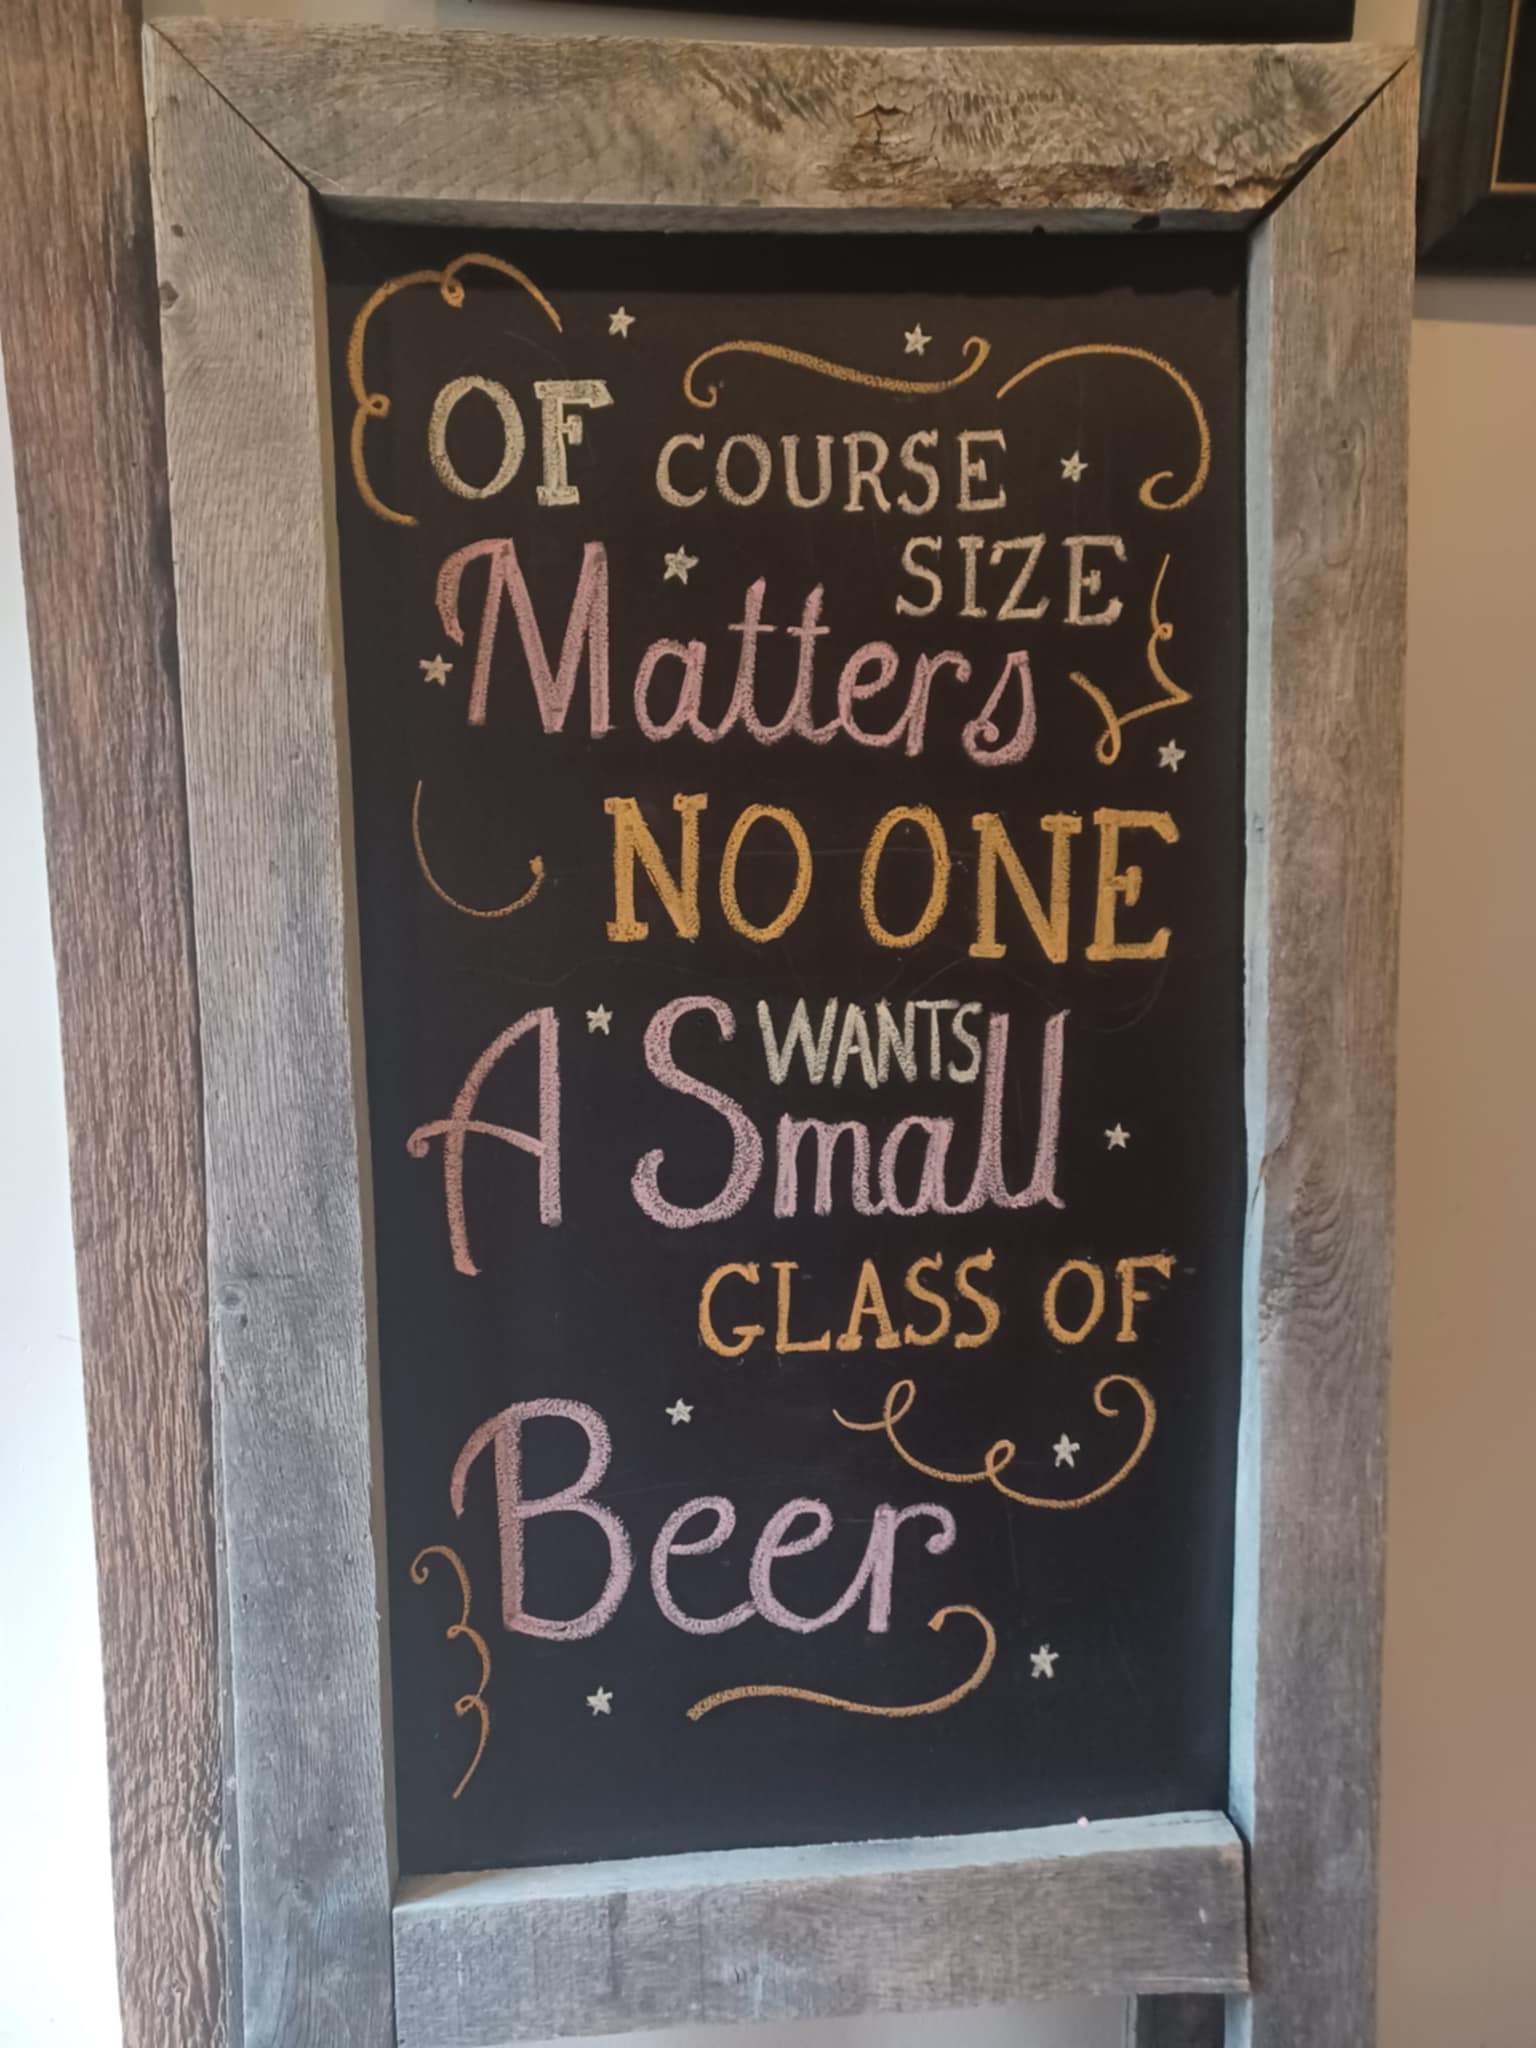 OF COURSE
SIZE
Matters
NO ONE
WANTS
A Small
GLASS OF
Beer